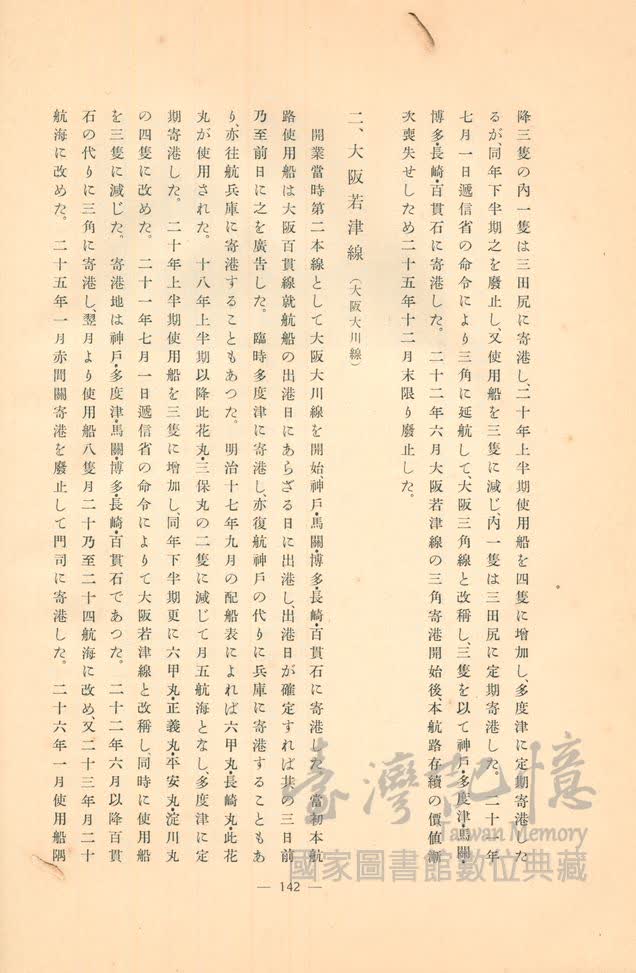 降三隻の內一隻は三田尻に寄港し、二十年上半期使用船を四隻に增加し、多度津に定期寄港した
るが、同年下半期之を廢止し、又使用船を三隻に減じ、內一隻は三田尻に定期寄港した。二十一年
七月一日遞信省の命令により三角に延航して、大阪三角線と改稱し、三隻を以て神戶・多度津・馬關・
博多・長崎・百貫石に寄港した。二十二年六月大阪若津線の三角寄港開始後、本航路存續の價値漸
次喪失せしため二十五年十二月末限り廢止した。
二、大阪若津線（大阪大川線）
開業當時第二本線として大阪大川線を開始神戶・馬關・博多・長崎・百貫石に寄港した。當初本航
路使用船は大阪百貫線就航船の出港日にあらざる日に出港し、出港日が確定すれば其の三日前
乃至前日に之を廣告した。臨時多度津に寄港し、亦復航神戶の代りに兵庫に寄港することもあ
り、亦往航兵庫に寄港することもあつた。明治十七年九月の配船表によれば六甲丸・長崎丸・此花
丸が使用された。十八年上半期以降此花丸・三保丸の二隻に減じて月五航海となし、多度津に定
期寄港した。二十年上半期使用船を三隻に增加し、同年下半期更に六甲丸・正義丸・平安丸・淀川丸
の四隻に改めた。二十一年七月一日遞信省の命令によりて大阪若津線と改稱し、同時に使用船
を三隻に減じた。寄港地は神戶・多度津・馬關・博多・長崎・百貫石であつた。二十二年六月以降百貫
石の代りに三角に寄港し、翌月より使用船八隻月二十乃至二十四航海に改め、又二十三年月二十
航海に改めた。二十五年一月赤間關寄港を廢止して門司に寄港した。二十六年一月使用船隅
— 142 —
臺灣記憶
Taiwan Memory
國家圖書館數位典藏